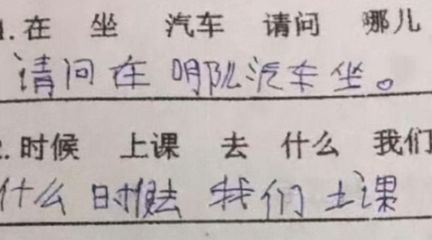 1.在 坐 汽车 请问 哪儿
请问在 哪儿汽车坐。
2.时候 上课 去 什么 我们
什么 时候去 我们 上课